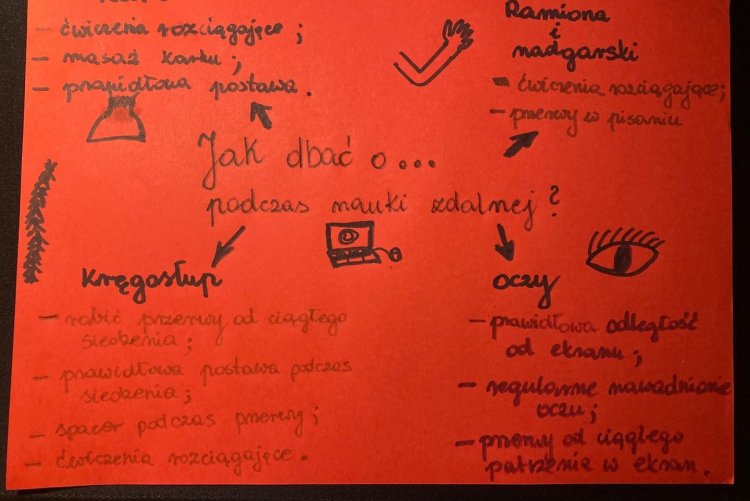 - ćwiczenia rozciągające;
- masaż karku;
- prawidłowa postawa.
Ramiona
i
nadgarski
- ćwiczenia rozciągające;
- przerwy w pisaniu
Jak dbać o...
podczas nauki zdalnej?
Kręgosłup
- robić przerwy od ciągłego
siedzenia;
- prawidłowa postawa podczas
siedzenia;
- spacer podczas przerwy;
- ćwiczenia rozciągające.
oczy
- prawidłowa odległość
od ekranu;
- regularne nawadnianie
oczu;
- przerwy od ciągłego
patrzenia w ekran.